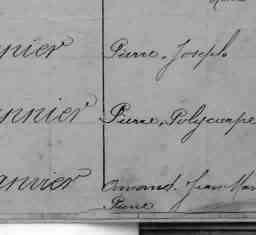 nier Pierre Joseph
nnier Pierre, Polycarpe
anier Jean Mar
Pierre